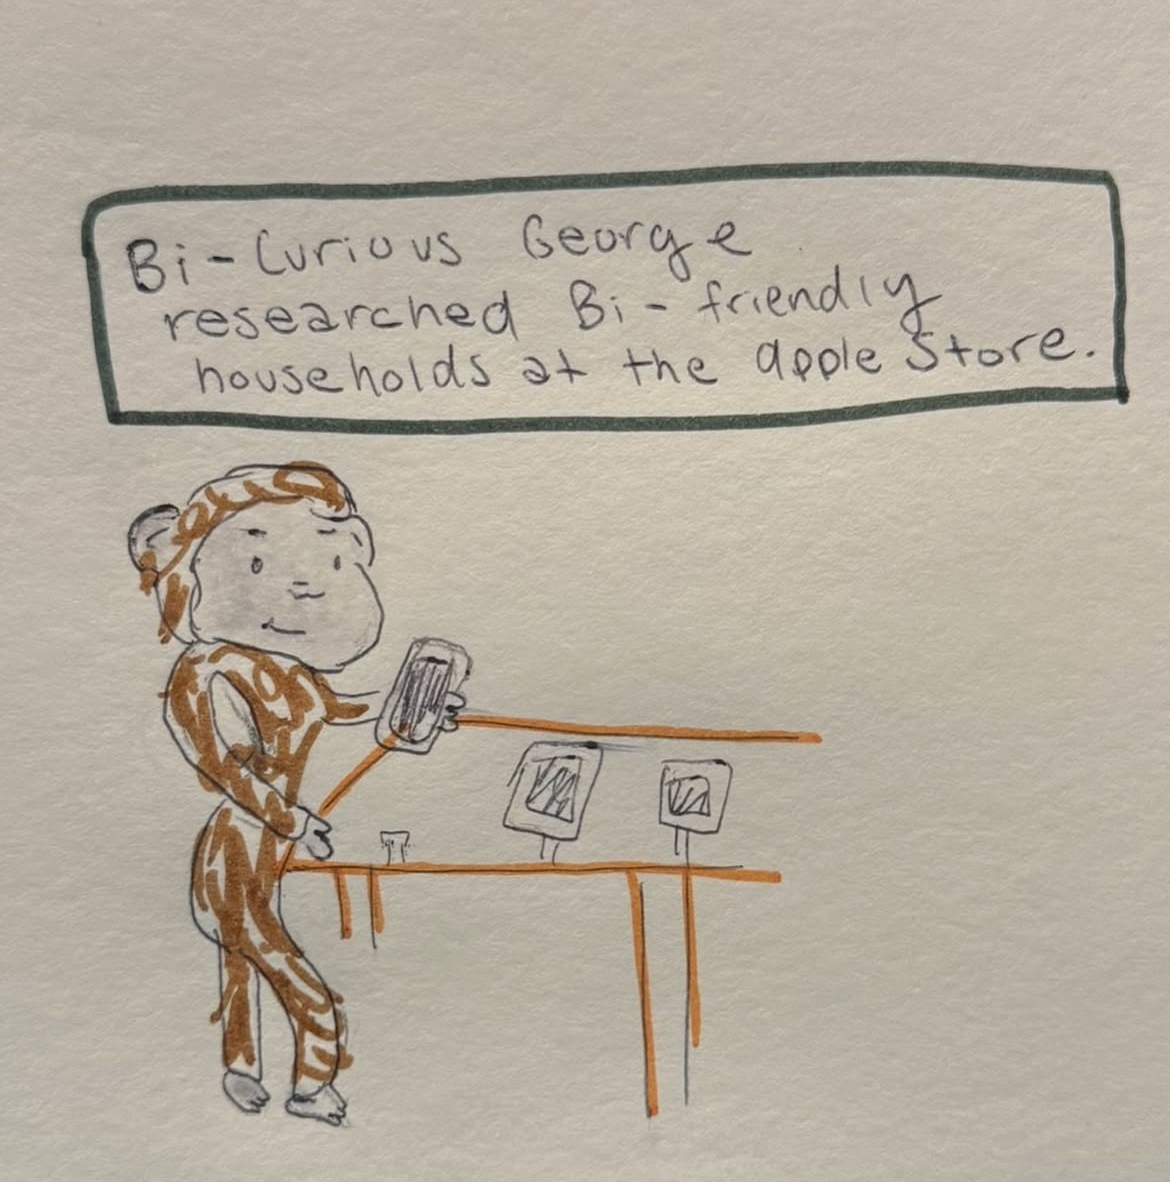 Bi-Curious George
researched Bi-friendly
households at the apple Store.